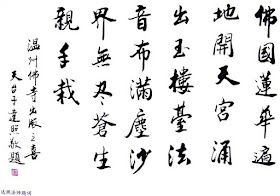 佛國蓮華遍
地開天宮涌
出玉樓臺法
音布滿塵沙
界無尽蒼生
親手栽
温州佛寺出版之喜
天台子達照敬題
达照法师题词